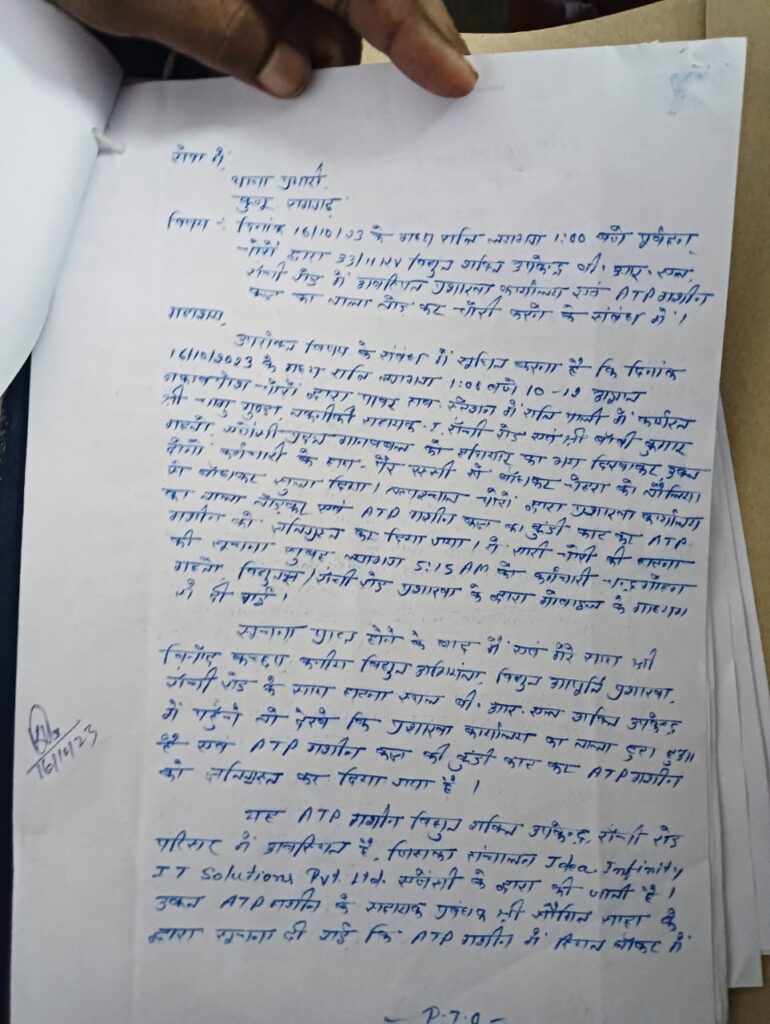 सेवा में,
थाना प्रभारी,
कुजू रामगढ़
विषय :- दिनांक 16/10/23 के मध्य रात्रि लगभग 1:00 बजे
चोरों द्वारा 33/11 KV विद्युत शक्ति उपकेन्द्र बी. आर. एल.
राँची रोड में अवस्थित प्रशाखा कार्यालय एवं ATP मशीन
कक्ष का ताला तोड़ कर चोरी करने के संबंध में।
महाशय,
उपरोक्त विषय के संबंध में सूचित करना है कि दिनांक
16/10/2023 के मध्य रात्रि लगभग 1:00 बजे 10-12
नकाबपोश चोरों द्वारा पावर सब स्टेशन में रात्रि पाली में कार्यरत
श्री मुण्डा तकनीकी सहायक राँची रोड एवं श्री बॉबी कुमार
महतो को हथियार का भय दिखाकर उक्त
दोनों कर्मचारी के हाथ-पैर रस्सी में बाँधकर चेहरा को तौलिया
से बाँधकर सुला दिया। तत्पश्चात चोरों द्वारा प्रशाखा कार्यालय
का ताला तोड़कर एवं ATP मशीन कक्ष का कुंडी काट कर ATP
मशीन को क्षतिग्रस्त कर दिया गया। ये सारी चोरी की घटना
की सूचना सुबह लगभग 5:15 AM को कर्मचारी
महतो राँची रोड प्रशाखा के द्वारा मोबाइल के माध्यम
से दी गई।
सूचना प्राप्त होने के बाद मैं एवं मेरे साथ श्री
विनोद कच्छप कनीय विद्युत अभियंता, विद्युत आपूर्ति प्रशाखा,
राँची रोड के साथ घटना स्थल बी. आर. एल शक्ति उपकेन्द्र
में पहुँचे तो देखे कि प्रशाखा कार्यालय का ताला टूटा हुआ
है एवं ATP मशीन कक्ष की कुंडी काट कर ATP मशीन
को क्षतिग्रस्त कर दिया गया है।
16/10/23
यह ATP मशीन विद्युत शक्ति उपकेन्द्र, राँची रोड
परिसर में अवस्थित है, जिसका संचालन Idea Infinity
IT Solutions Pvt. Ltd. एजेंसी के द्वारा की जाती है।
उक्त ATP मशीन के सहायक प्रबंधक श्री साहा के
द्वारा सूचना दी गई कि ATP मशीन में स्थित लॉकर में
- P.T.O -